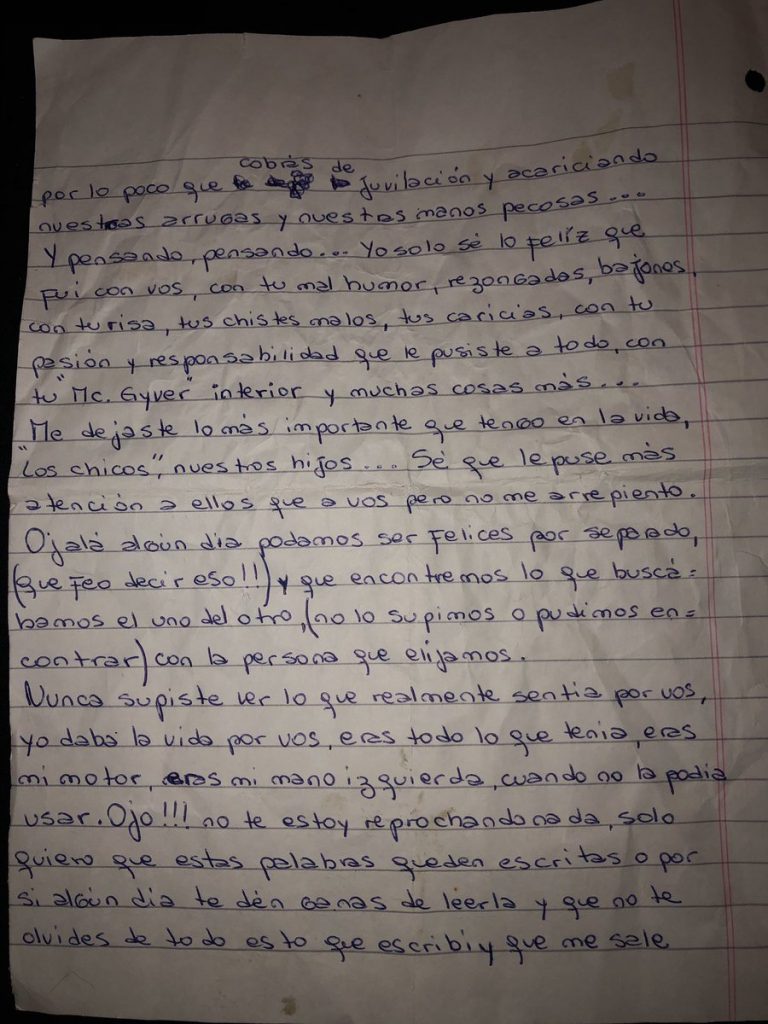 por lo poco que cobrás de juvilación y acariciando
nuestras arrugas y nuestras manos pecosas...
Y pensando, pensando... Yo solo sé lo feliz que
fui con vos, con tu mal humor, rezongadas, bajones,
con tu risa, tus chistes malos, tus caricias, con tu
pasión y responsabilidad que le pusiste a todo, con
tu "Mc. Gyver" interior y muchas cosas más...
Me dejaste lo más importante que tengo en la vida,
"Los chicos", nuestros hijos... Sé que le puse más
atención a ellos que a vos pero no me arrepiento.
Ojalá algún dia podamos ser felices por separado,
(que feo decir eso!!) y que encontremos lo que buscá=
bamos el uno del otro, (no lo supimos o pudimos en=
contrar) con la persona que elijamos.
Nunca supiste ver lo que realmente sentia por vos,
yo daba la vida por vos, eras todo lo que tenia, eras
mi motor, eras mi mano izquierda, cuando no la podia
usar. Ojo!!! no te estoy reprochando nada, solo
quiero que estas palabras queden escritas o por
si algún dia te dén ganas de leerla y que no te
olvides de todo esto que escribi y que me sale